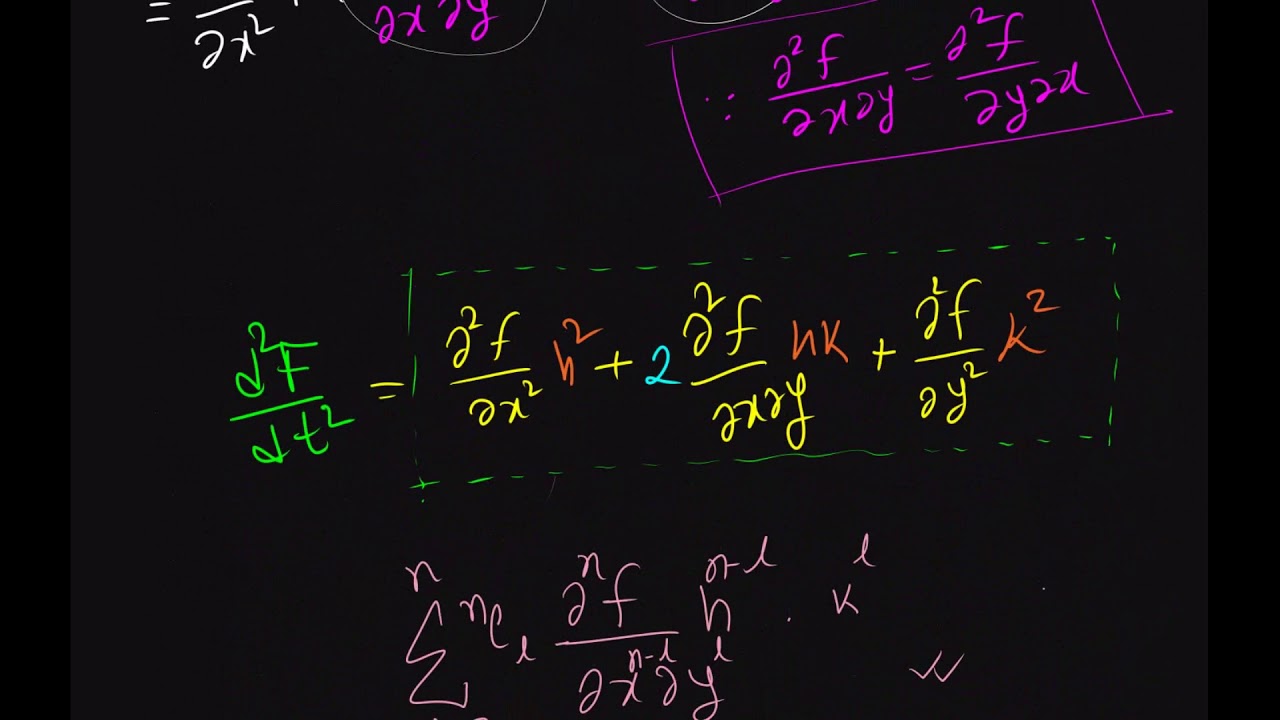 = ∂x² ∂x∂y
∵ ∂²f/∂x∂y = ∂²f/∂y∂x
d²F/dt² = ∂²f/∂x² h² + 2 ∂²f/∂x∂y hk + ∂²f/∂y² k²
n
∑ ⁿC_l ∂ⁿf/∂xⁿ⁻ˡ∂yˡ hⁿ⁻ˡ . kˡ